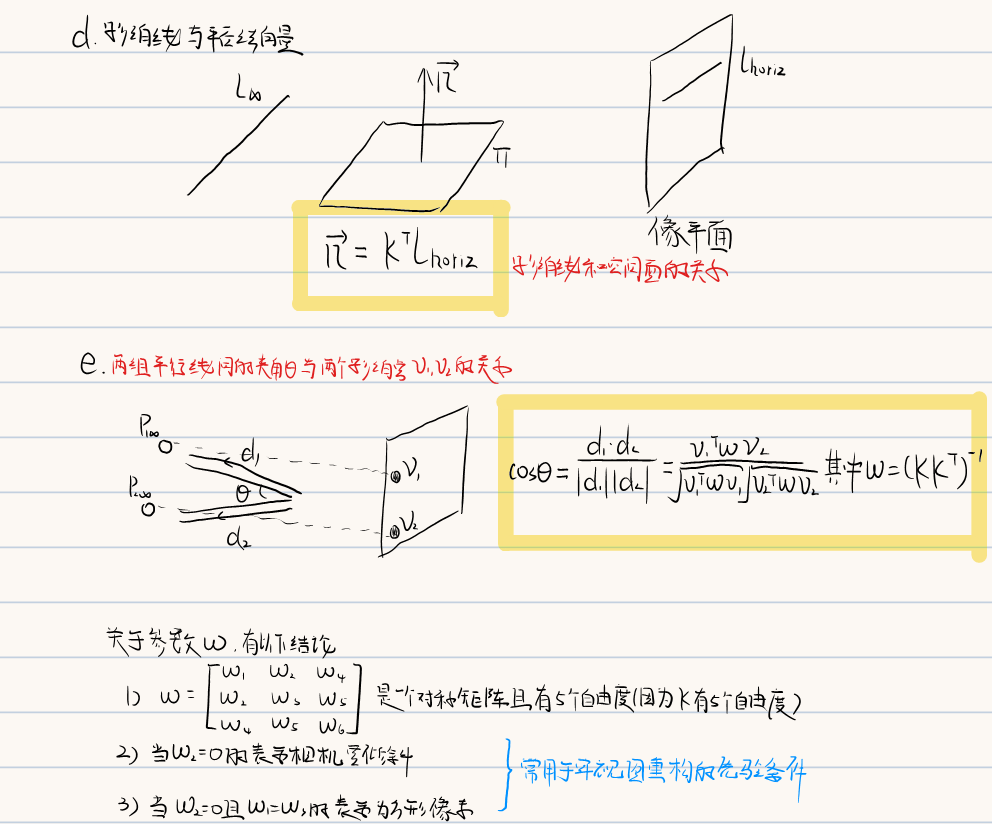 d. 影消线与平面法向量
L∞
n⃗
π
l_horiz
像平面
n⃗ = K^T l_horiz
影消线和空间面的关系
e. 两组平行线间的夹角θ与两个影消点 v₁, v₂ 的关系
P₁∞
d₁
v₁
θ
P₂∞
d₂
v₂
cosθ = d₁·d₂ / |d₁||d₂| = v₁^T ω v₂ / √(v₁^T ω v₁) √(v₂^T ω v₂) 其中 ω = (K K^T)^-1
关于参数 ω, 有以下结论
1) ω = [ω₁ ω₂ ω₄; ω₂ ω₃ ω₅; ω₄ ω₅ ω₆] 是一个对称矩阵且有5个自由度(因为K有5个自由度)
2) 当ω₂=0时表示相机零倾斜
3) 当ω₂=0且ω₁=ω₃时表示为方形像素
常用于单视图重构的先验条件